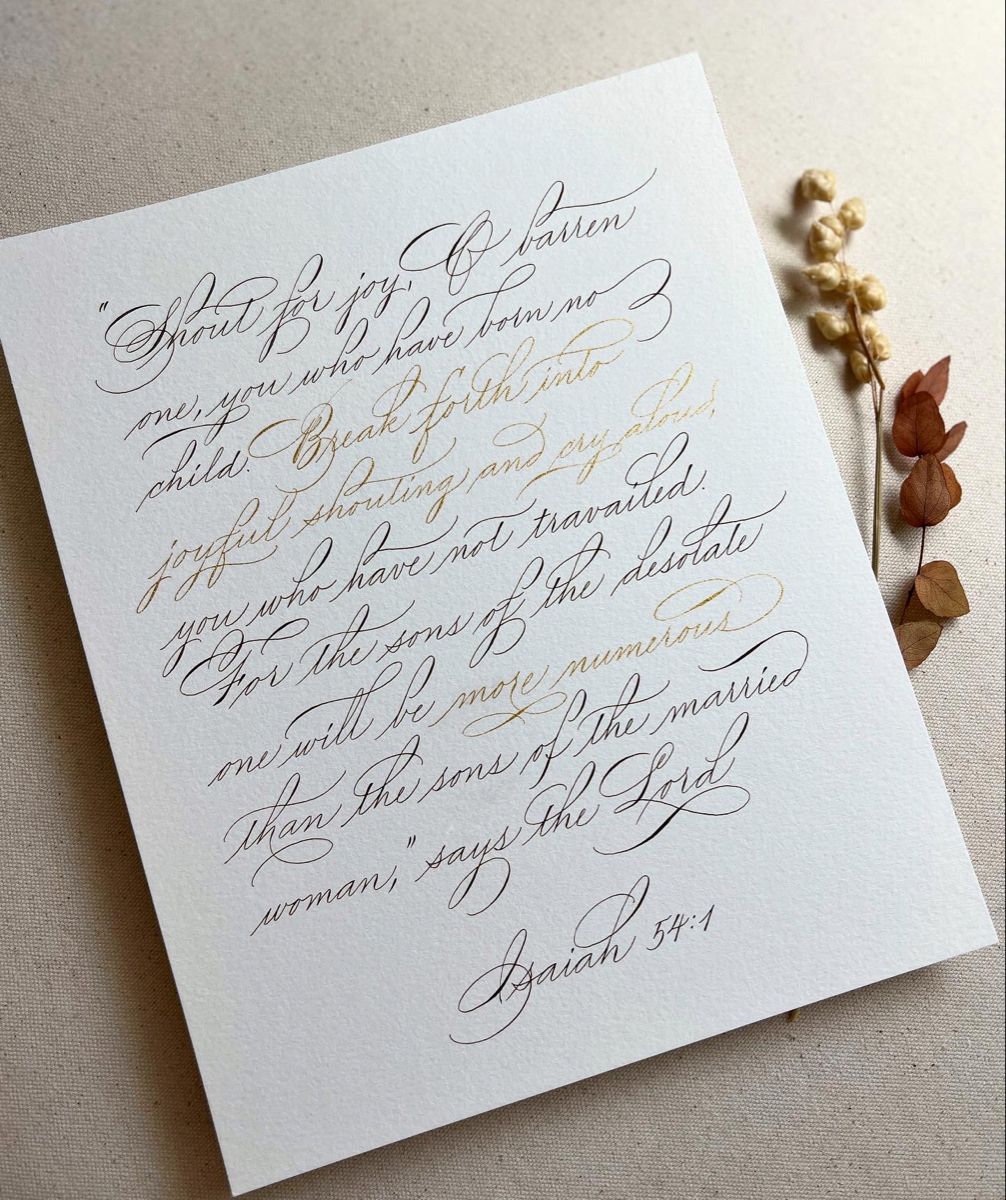 "Shout for joy, O barren
one, you who have born no
child. Break forth into
joyful shouting and cry aloud,
you who have not travailed.
For the sons of the desolate
one will be more numerous
than the sons of the married
woman," says the Lord
Isaiah 54:1